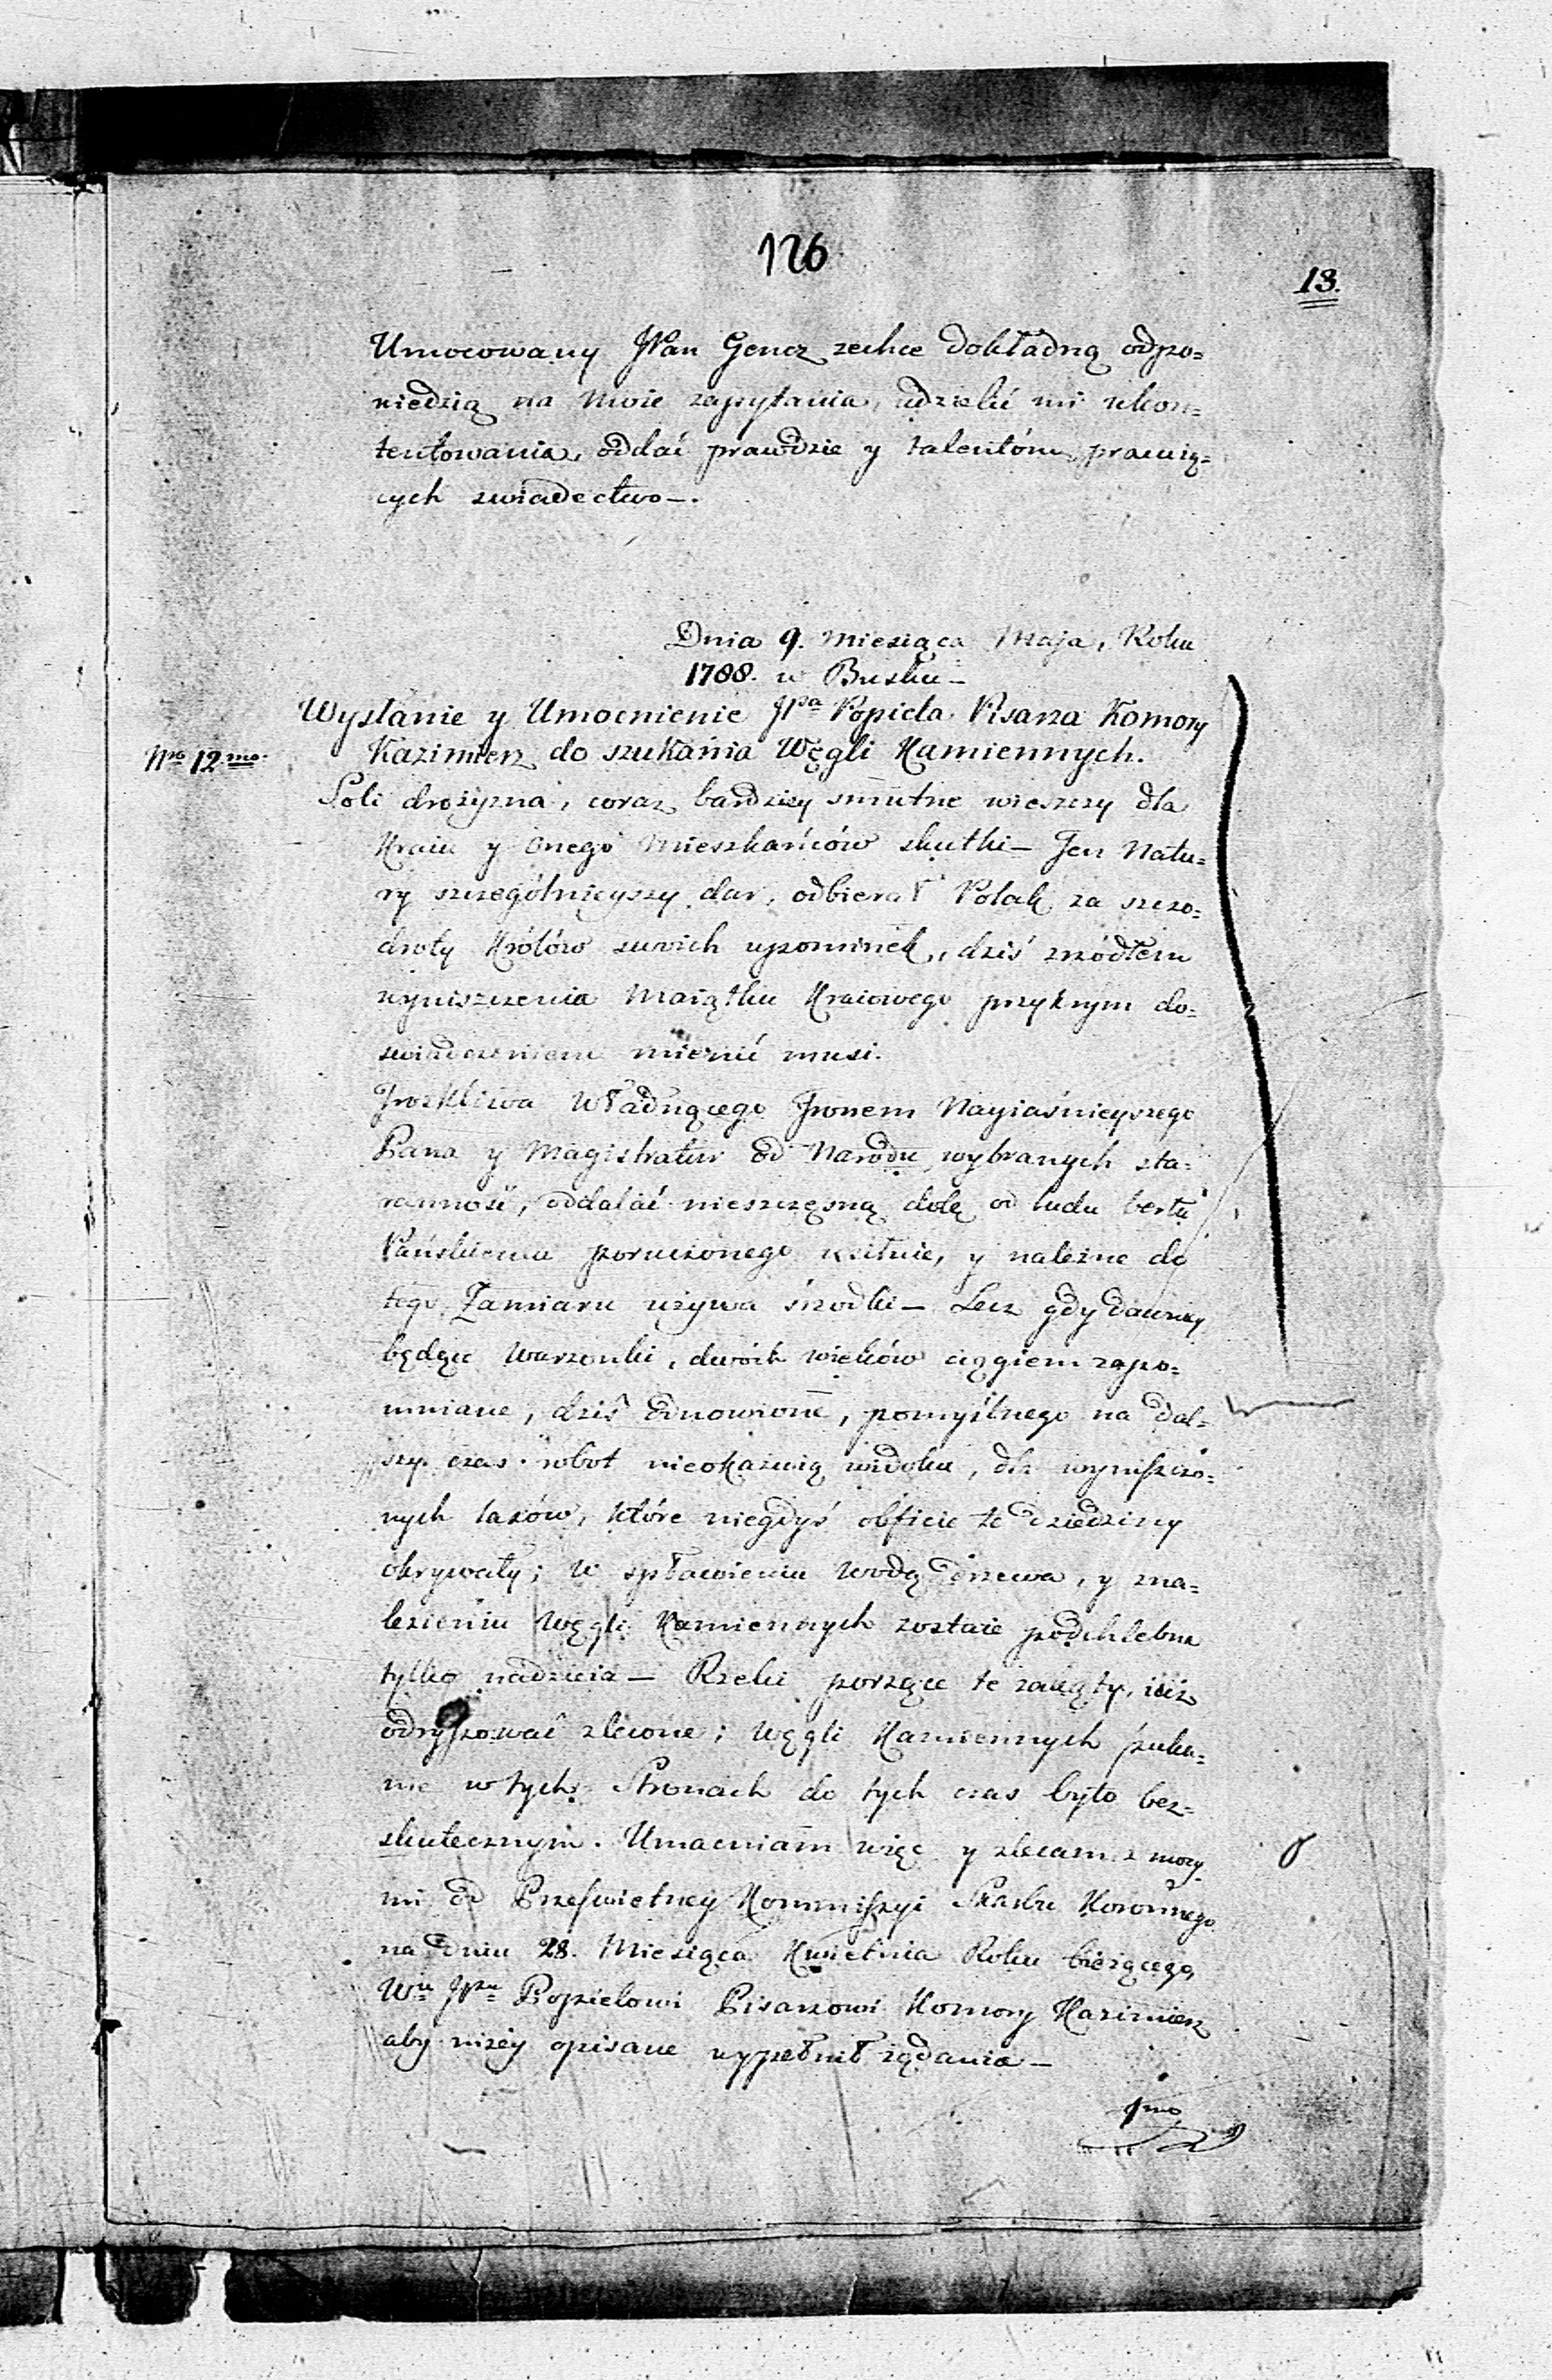 126
13.
Umocowany JPan Gencz zechce dokładną odpo=
wiedzią na moie zapytania, udzielić mi ukon=
tentowania, oddać prawdzie y talentóm pracuią=
cych swiadectwo —.
Dnia 9. Miesiąca Maja, Roku
1788. w Busku —
Wysłanie y Umocnienie JPa Popiela Pisarza Komory
Nro 12mo.
Kazimierz do szukania Węgli Kamiennych.
Soli drożyzna, coraz bardziey smutne wieszczy dla
Kraiu y onego Mieszkańców skutki — Ten Natu=
ry szczegolnieyszy dar, odbierał Polak za szczo=
droty Królów swoich upominek, dziś zrzódłem
wyniszczenia Maiątku Kraiowego przykrym do=
swiadczeniem mienić musi.
Troskliwa Władnącego Tronem Nayiaśnieyszego
Pana y Magistratur od Narodu wybranych sta=
ranność, oddalać nieszczęsną dolę od ludu berłu
Pańskiemu poruczonego usilnie, y należne do
tego Zamiaru używa śrzodki — Lecz gdy dawniey
będące Warzonki, dwóch wieków ciągiem zapo=
mniane, dziś odnowione, pomyślnego na dal=
szy czas robot nieokazuią widoku, dla wyniszczo=
nych lasów, które niegdyś obficie te dziedziny
okrywały; w spławieniu wodą drzewa, y zna=
lezieniu Węgli Kamiennych zostaie podchlebna
tylko nadzieia — Rzeki porzące te zakąty, iuż
odryssować zlecone; Węgli Kamiennych szuka=
nie w tych Stronach do tych czas było bez=
skutecznym. Umacniam więc y zlecam z mocy
mi od Prześwietney Kommissyi Skarbu Koronnego
na dniu 28. Miesiąca Kwietnia Roku bieżącego,
Wu JPu Popielowi Pisarzowi Komory Kazimierz
aby niżey opisane wypełnił żądania —
1mo